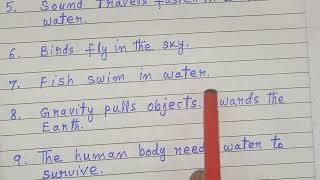 5. Sound Travels
water.
6. Birds fly in the sky.
7. Fish swim in water.
8. Gravity pulls objects. wards the
Earth.
9. The human body need water to
survive.